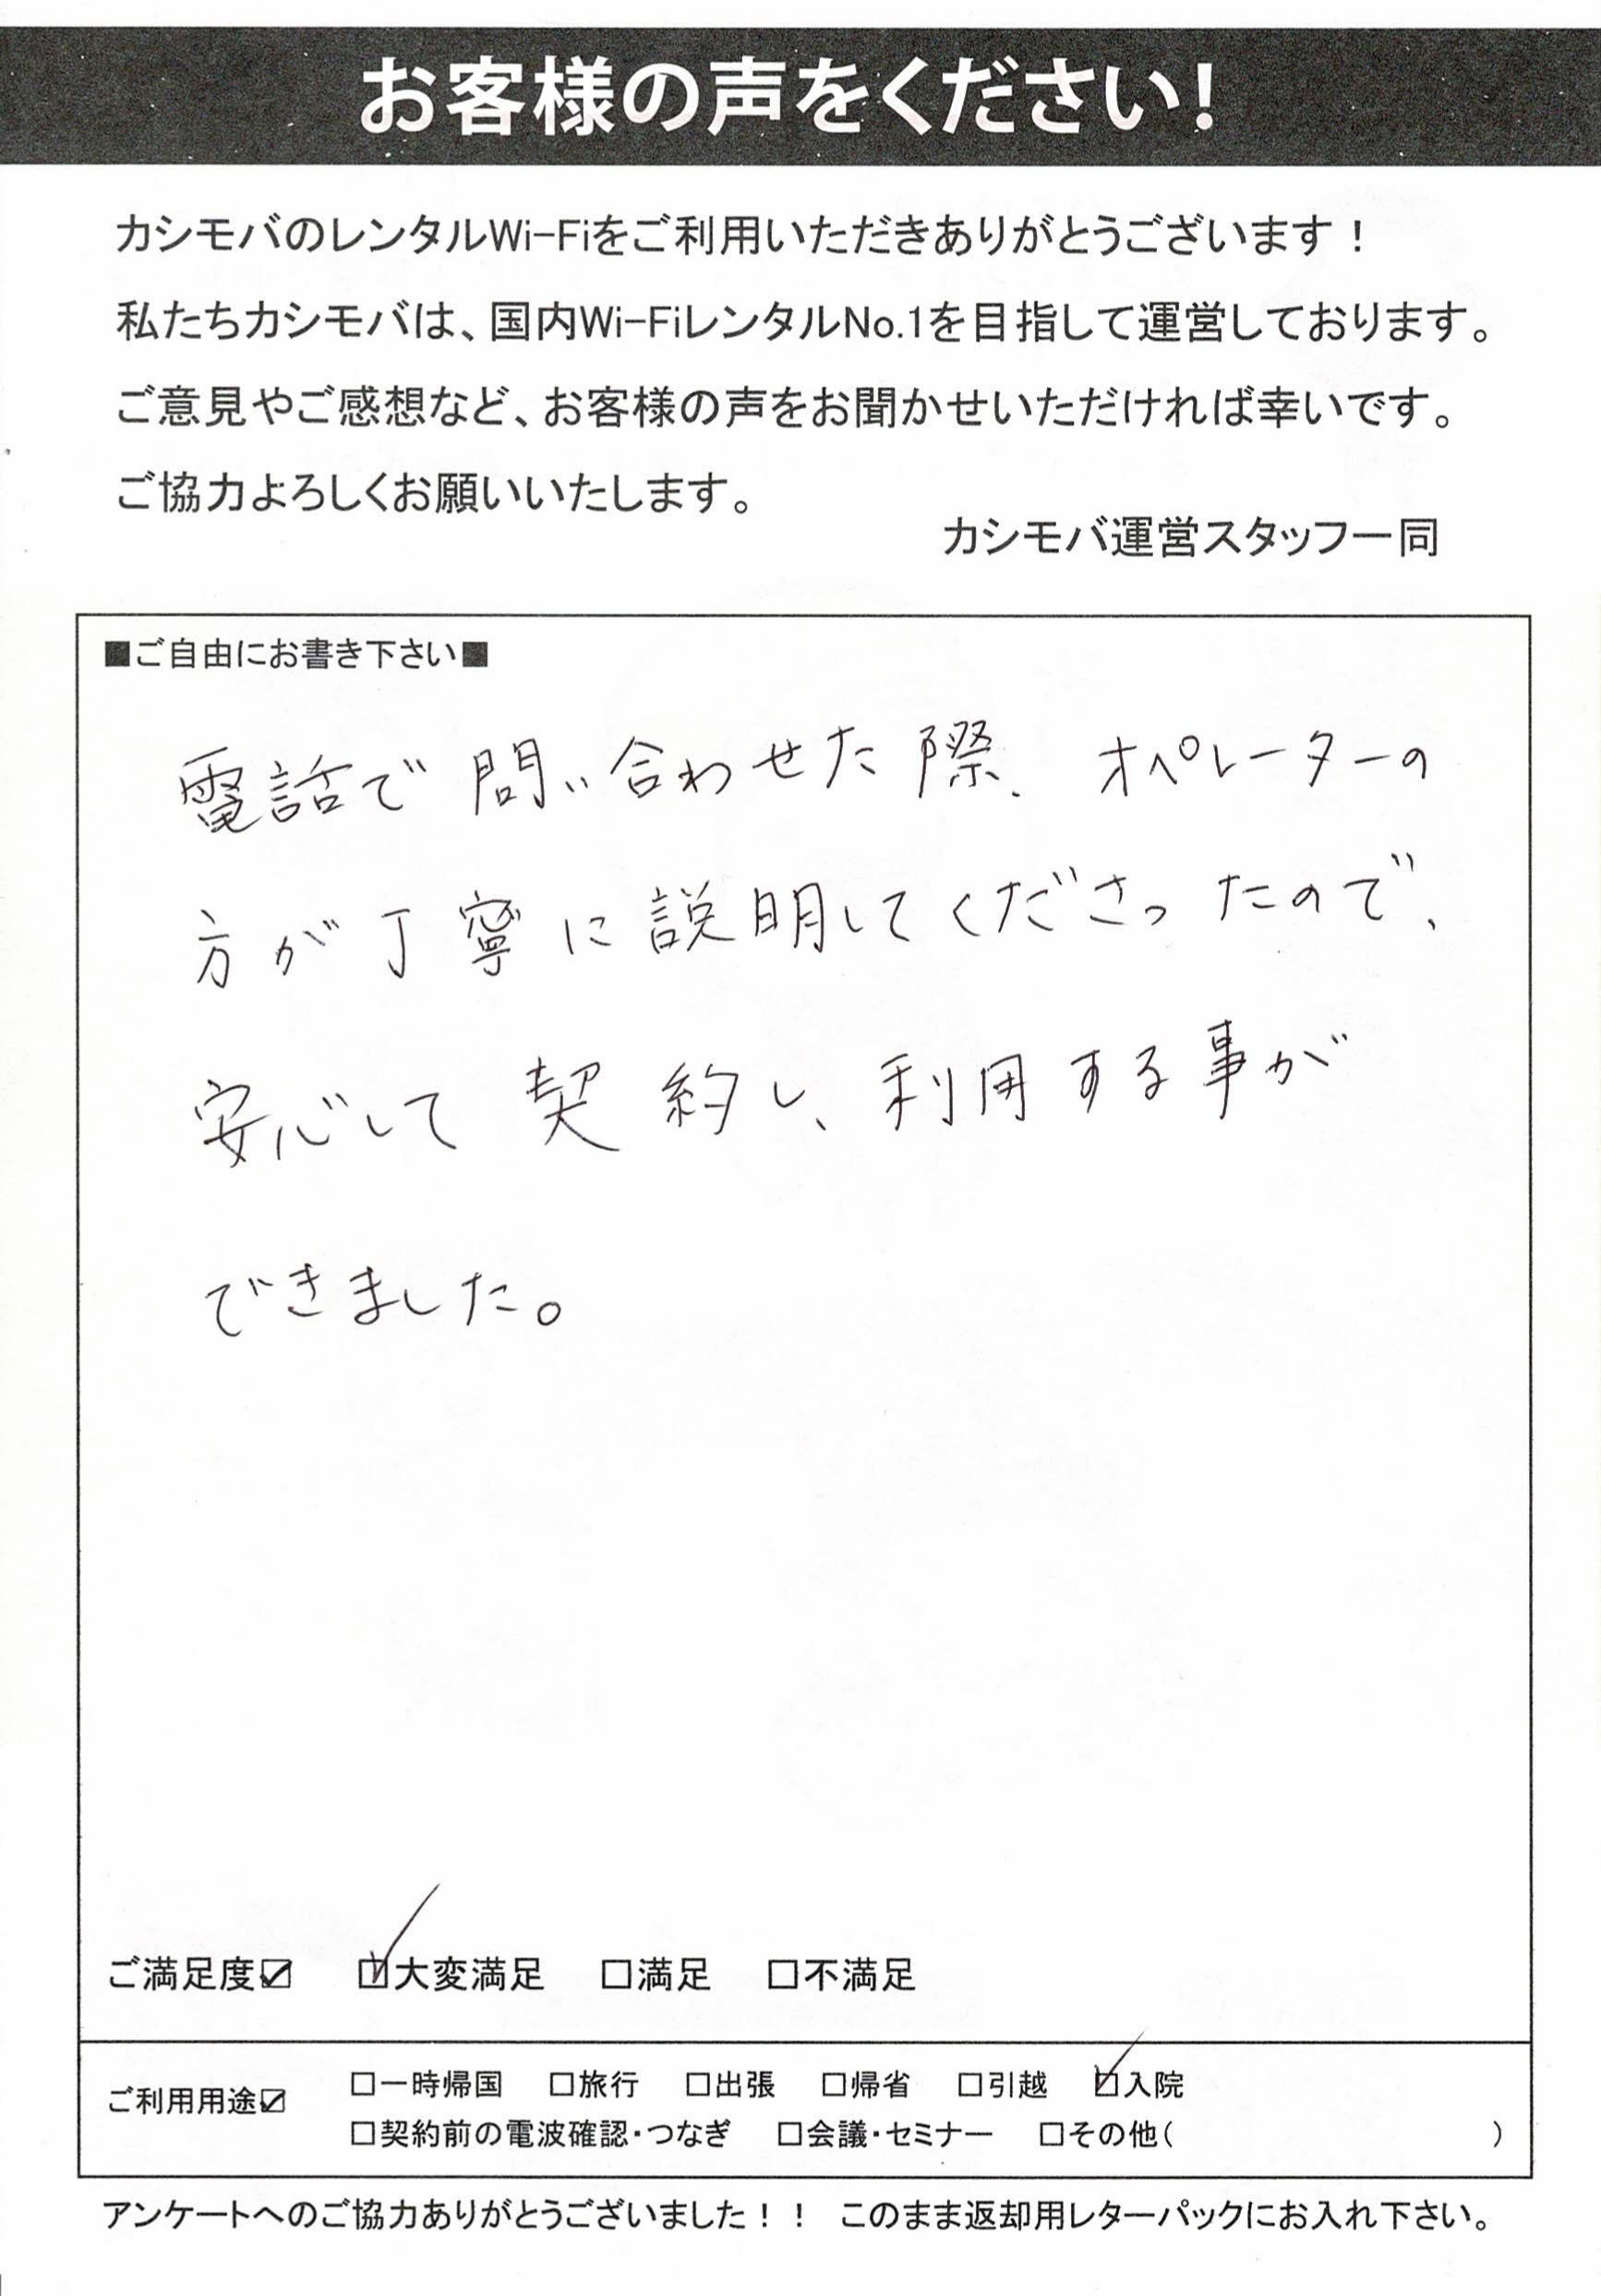 お客様の声をください!
カシモバのレンタルWi-Fiをご利用いただきありがとうございます！
私たちカシモバは、国内Wi-FiレンタルNo.1を目指して運営しております。
ご意見やご感想など、お客様の声をお聞かせいただければ幸いです。
ご協力よろしくお願いいたします。
カシモバ運営スタッフ一同
■ご自由にお書き下さい■
電話で問い合わせた際、オペレーターの
方が丁寧に説明してくださったので、
安心して契約し、利用する事が
できました。
ご満足度☑ ☑大変満足 □満足 □不満足
ご利用用途☑ □一時帰国 □旅行 □出張 □帰省 □引越 ☑入院
□契約前の電波確認・つなぎ □会議・セミナー □その他( )
アンケートへのご協力ありがとうございました！！ このまま返却用レターパックにお入れ下さい。